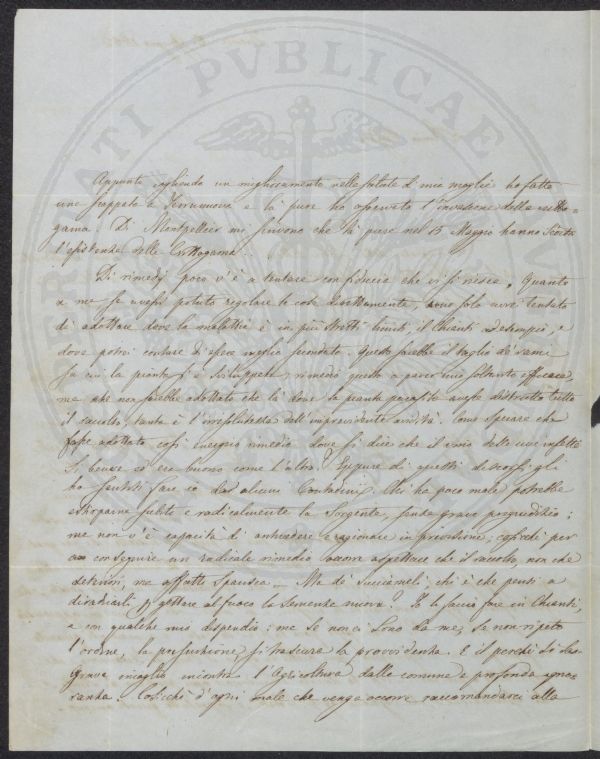 Appunto cogliendo un miglioramento nella salute d mia moglie ho fatto
una scappata a Terranuova e là pure ho osservato l'invasione della critto-
gama. Di Montpellier mi scrivono che là pure nel 15 Maggio hanno
l'esistenza della Crittogama.
Di rimedj poco v'è a tentare con fiducia che vi si riesca. Quanto
a me se avessi potuto regolare le cose direttamente, avrei tentato
di adottare dove la malattia è in più stretti limiti, il Chianti ad esempio, e
dove potrei contare di esser meglio secondato. Questo sarebbe il taglio di rami
su cui la pianta si è sviluppata, rimedio questo a parer mio soltanto efficace,
ma che non sarebbe adottato che là dove la pianta parassita avesse distrutto tutto
il raccolto, tanta è l'irresolutezza dell'imprevidente avidità. Come sperare che
fosse adottato così energico rimedio dove si dice che il vino delle uve infette
si bevve ed era buono come l'altro? Eppure di questi discorsi gli
ho sentiti fare io da alcuni Contadini. Chi ha poco male potrebbe
estirparne subito e radicalmente la sorgente, senza grave pregiudizio;
ma non v'è capacità di antivedere e ragionare in prevenzione; cosicché per
conseguire un radicale rimedio occorre aspettare che il raccolto, non che
deteriori, ma affatto sparisca. Ma de' succiameli, chi è che pensi a
diradicarli, e gettare al fuoco la semenza nuova? Io lo faccio fare in Chianti,
e con qualche mio dispendio: ma se non ci sono da me, se non ripeto
l'ordine, la persuasione, si trascura la provvidenza. E il perché di sì
grave inciaglio incontra l'Agricoltura dalla comune e profonda igno-
ranza. Cosicché d'ogni male che venga occorre raccomandarci alla